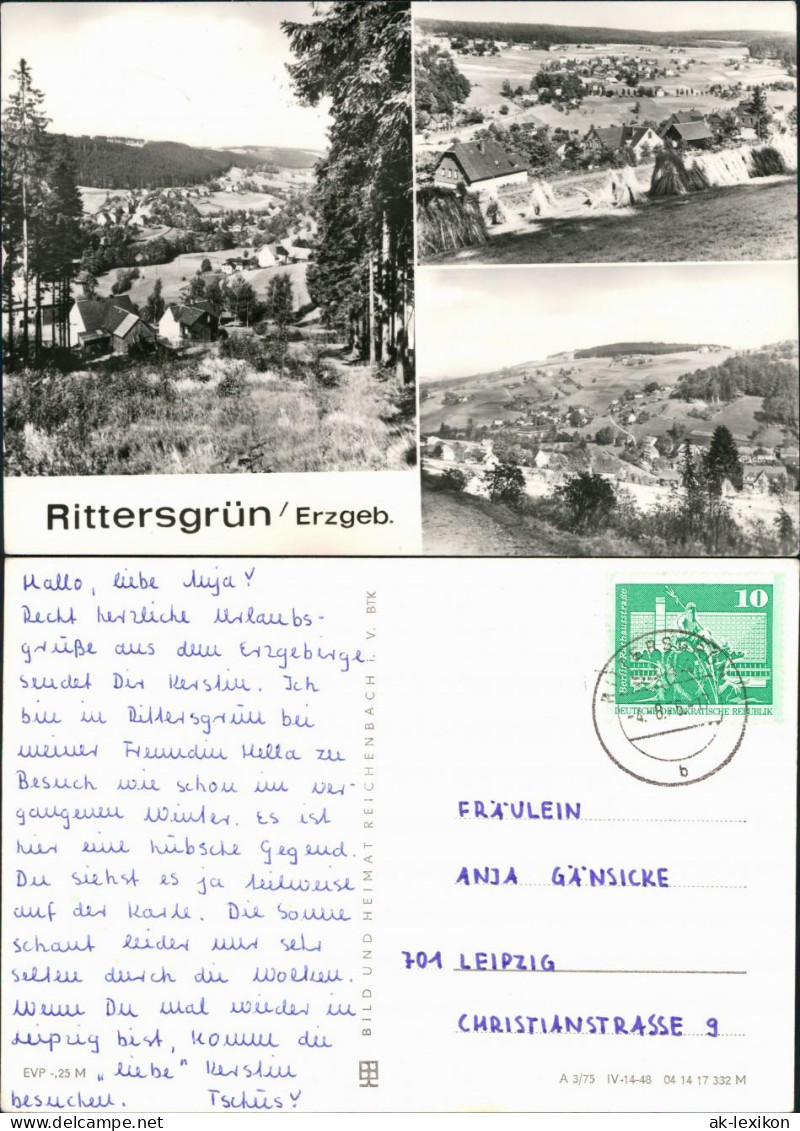 Rittersgrün / Erzgeb.
Hallo, liebe Anja!
Recht herzliche Urlaubs-
grüße aus dem Erzgebirge
sendet Dir Kerstin. Ich
bin in Rittersgrün bei
meiner Freundin Hella zu
Besuch wie schon im ver-
gangenen Winter. Es ist
hier eine hübsche Gegend.
Du siehst es ja teilweise
auf der Karte. Die Sonne
schaut leider nur sehr
selten durch die Wolken.
Wenn Du mal wieder in
Leipzig bist, komm die
„liebe" Kerstin
besuchen. Tschüs!
EVP -,25 M
BILD UND HEIMAT REICHENBACH i. V. BTK
10
Berlin, Rathausstraße
DEUTSCHE DEMOKRATISCHE REPUBLIK
RITTERSGRÜN
b
FRÄULEIN
ANJA GÄNSICKE
701 LEIPZIG
CHRISTIANSTRASSE 9
A 3/75 IV-14-48 04 14 17 332 M
ak-lexikon.com